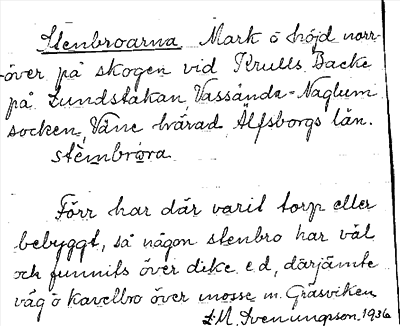 Stenbroarna. Mark o höjd norr-
över på skogen vid Krulls Backe
på Lundstakan, Vassända-Naglum
socken, Väne härad, Älfsborgs län.
stèmbrora
Förr har där varit torp eller
bebyggt, så någon stenbro har väl
och funnits över dike e.d, därjämte
väg o kavelbro över mosse m. Gräsviken
L.M. Svenungsson. 1936